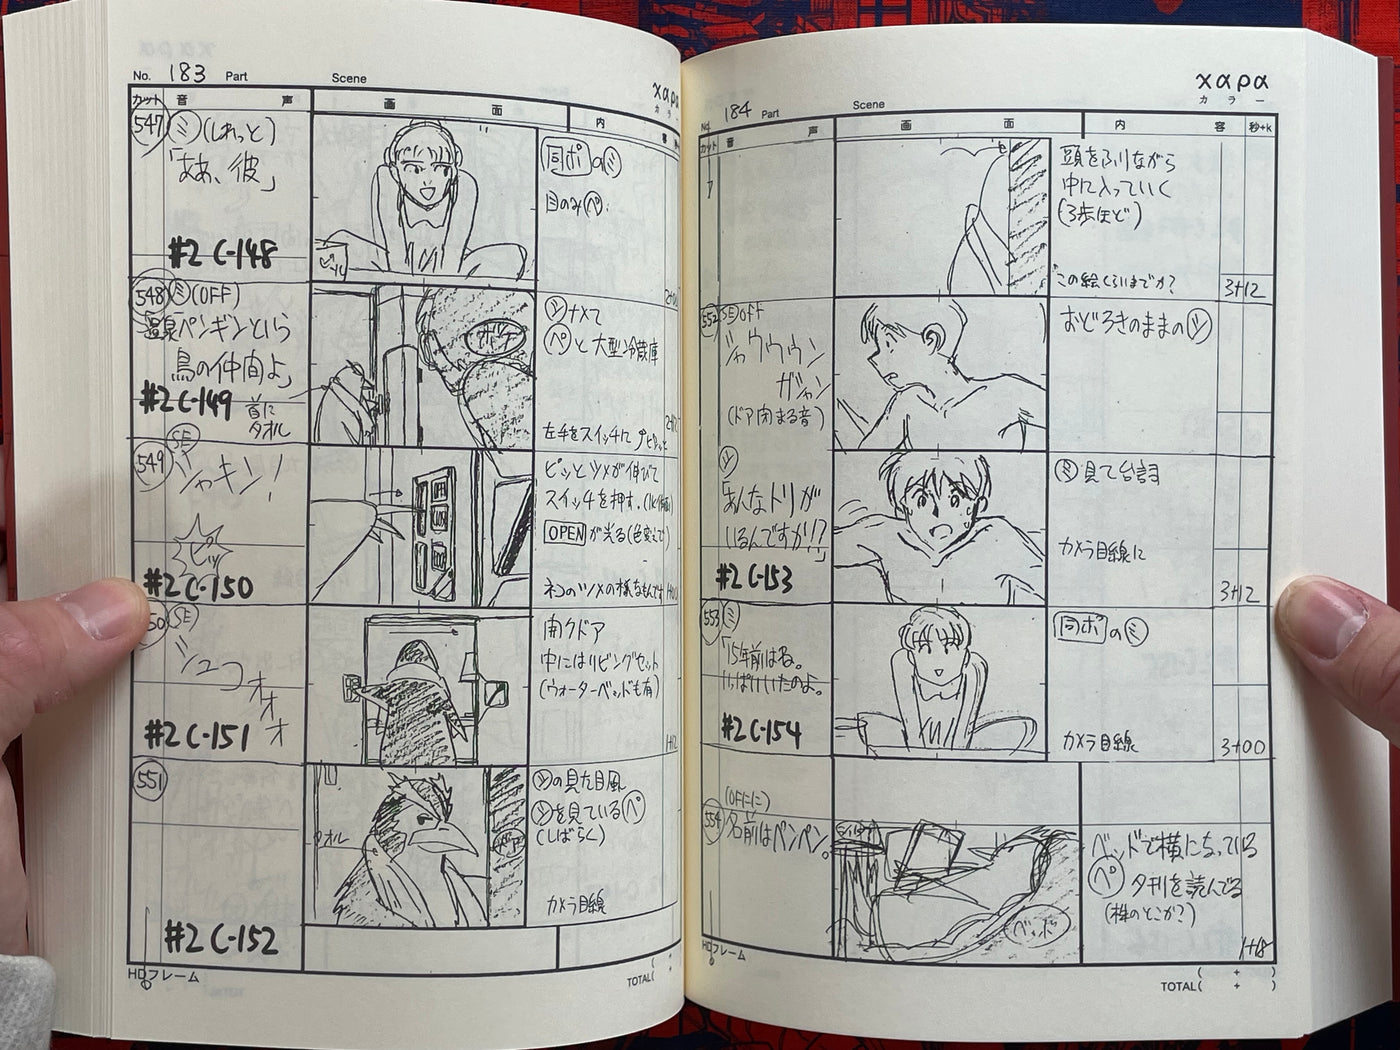 No. 183 Part Scene
χαρα
カラー
カット 音 声 画 面 内 容
547 ミ (しれっと)
「ああ、彼」
#2 C-148
同ポのミ
目のみペ
548 ミ(OFF)
「温泉ペンギンという
鳥の仲間よ」
#2 C-149 首に
タオル
シナメて
ペと大型冷蔵庫
左手をスイッチに
549 SE
ジャキン!
ピッ
#2 C-150
ピッとツメが伸びて
スイッチを押す。
OPENが光る(色変えで)
ネコのツメの様なもんです
550 SE
シュコオオオ
#2 C-151
開クドア
中にはリビングセット
(ウォーターベッドも有)
1+12
551
#2 C-152
タオル
ドア
シの見た目風
シを見ているペ
(しばらく)
カメラ目線
HDフレーム
TOTAL(
No. 184 Part Scene
χαρα
カラー
カット 音 声 画 面 内 容 秒+k
頭をふりながら
中に入っていく
(3歩ほど)
この絵くらいまでか?
3+12
552 SE OFF
シャウウウン
ガシャン
(ドア閉まる音)
おどろきのままのシ
シ
「あんなトリが
いるんですか!?」
#2 C-153
ミ見て台詞
カメラ目線に
3+12
553 ミ
「15年前はね。
いっぱいいたのよ。
#2 C-154
同ポのミ
カメラ目線
3+00
554 (OFFに)
名前はペンペン。
ベッド
ベッドで横になっている
ペ 夕刊を読んでる
(株のとこか?)
1+18
HDフレーム
TOTAL( + )
( + )